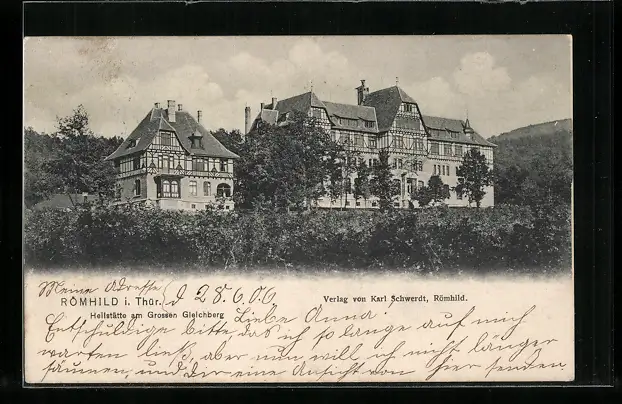 Meine Adresse
RÖMHILD i. Thür. d 28.6.06
Verlag von Karl Schwerdt, Römhild.
Heilstätte am Grossen Gleichberg
Liebe Anna!
Entschuldige bitte das ich so lange auf mich
warten ließ, aber nun will ich nicht länger
säumen, und dir eine Ansicht von hier senden